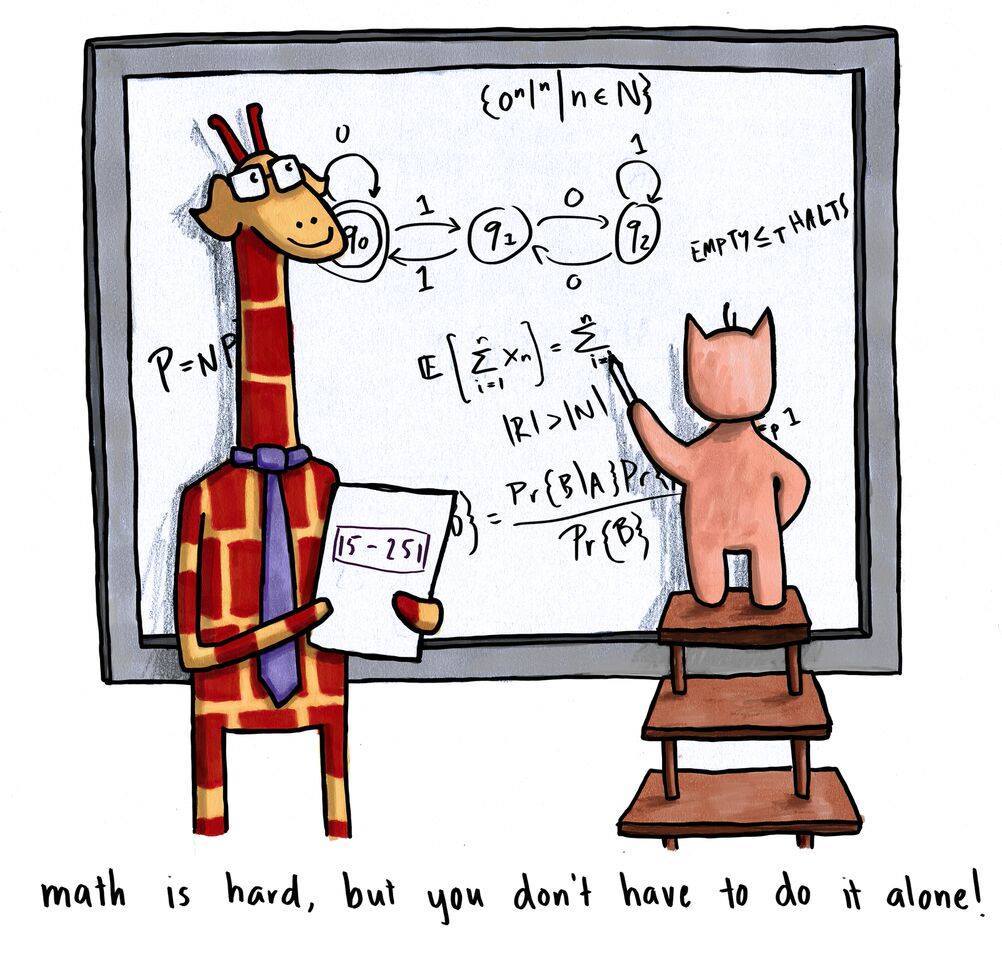 {0ⁿ1ⁿ|n∈N}
0
1
q0
1
q1
0
q2
1
0
EMPTY ≤T HALTS
P=NP
𝔼[∑ⁿᵢ₌₁ Xₙ] = ∑ⁿᵢ₌
|R|>|N|
=p 1
} = Pr{B|A}Pr{
Pr{B}
15-251
math is hard, but you don't have to do it alone!